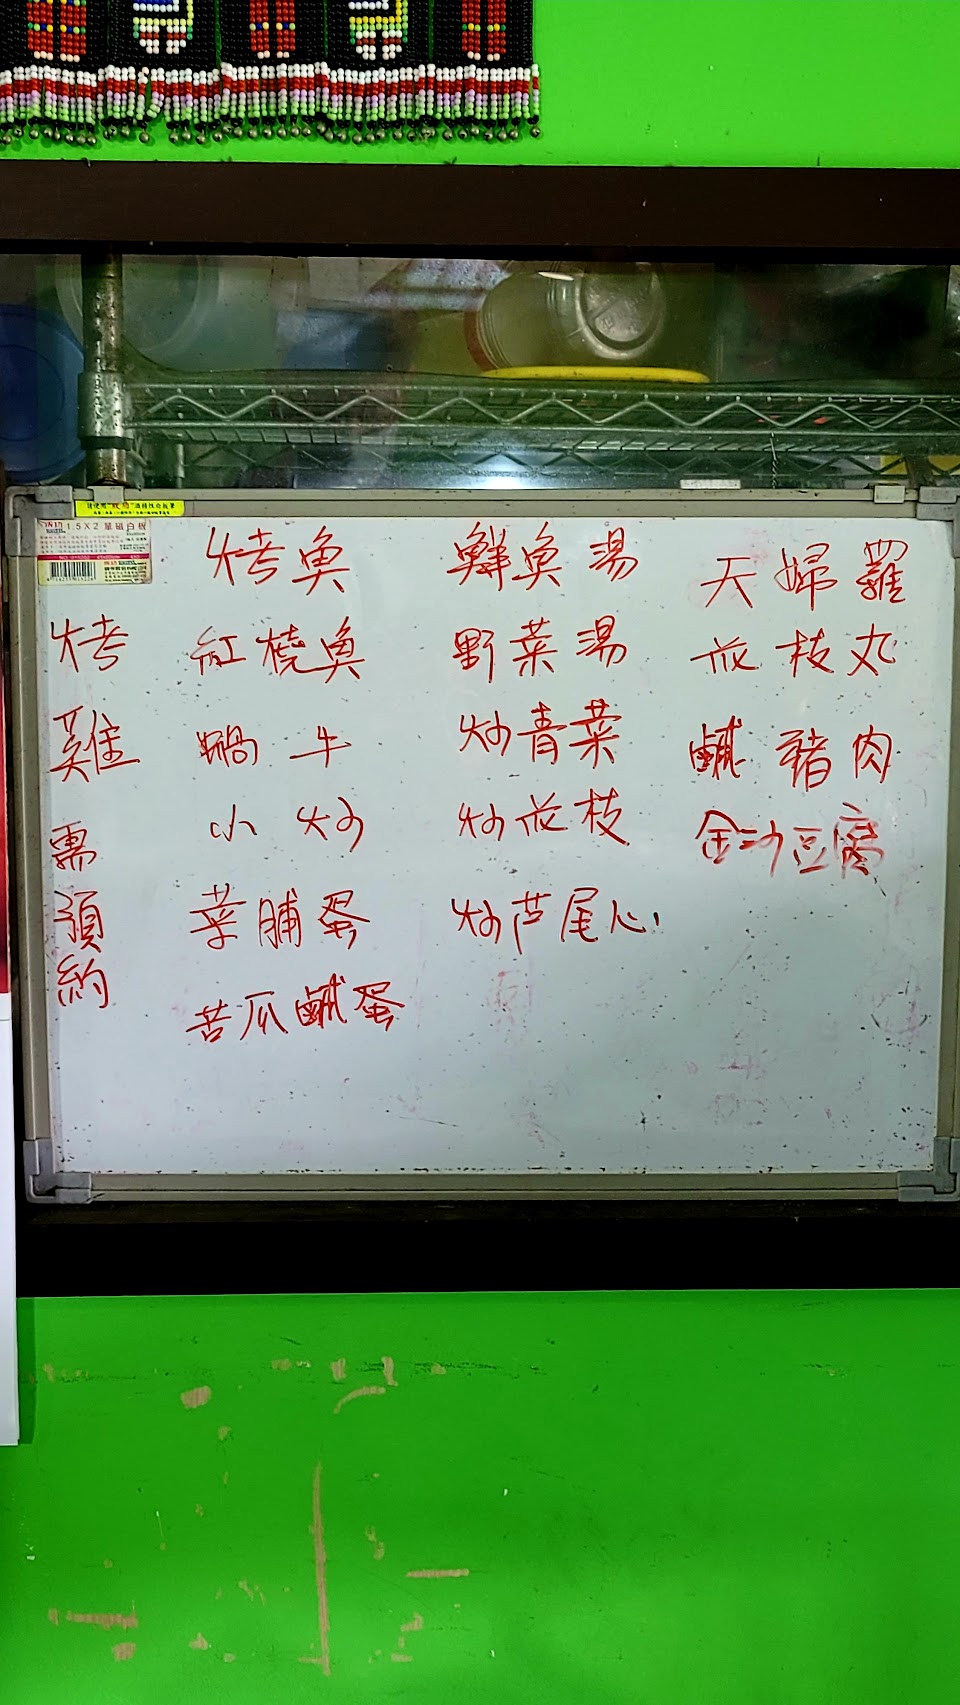 1.5X2 單磁白板
烤雞需預約
烤魚
紅燒魚
蝸牛
小炒
菜脯蛋
苦瓜鹹蛋
鮮魚湯
野菜湯
炒青菜
炒花枝
炒芦尾心
天婦羅
花枝丸
鹹豬肉
金沙豆腐